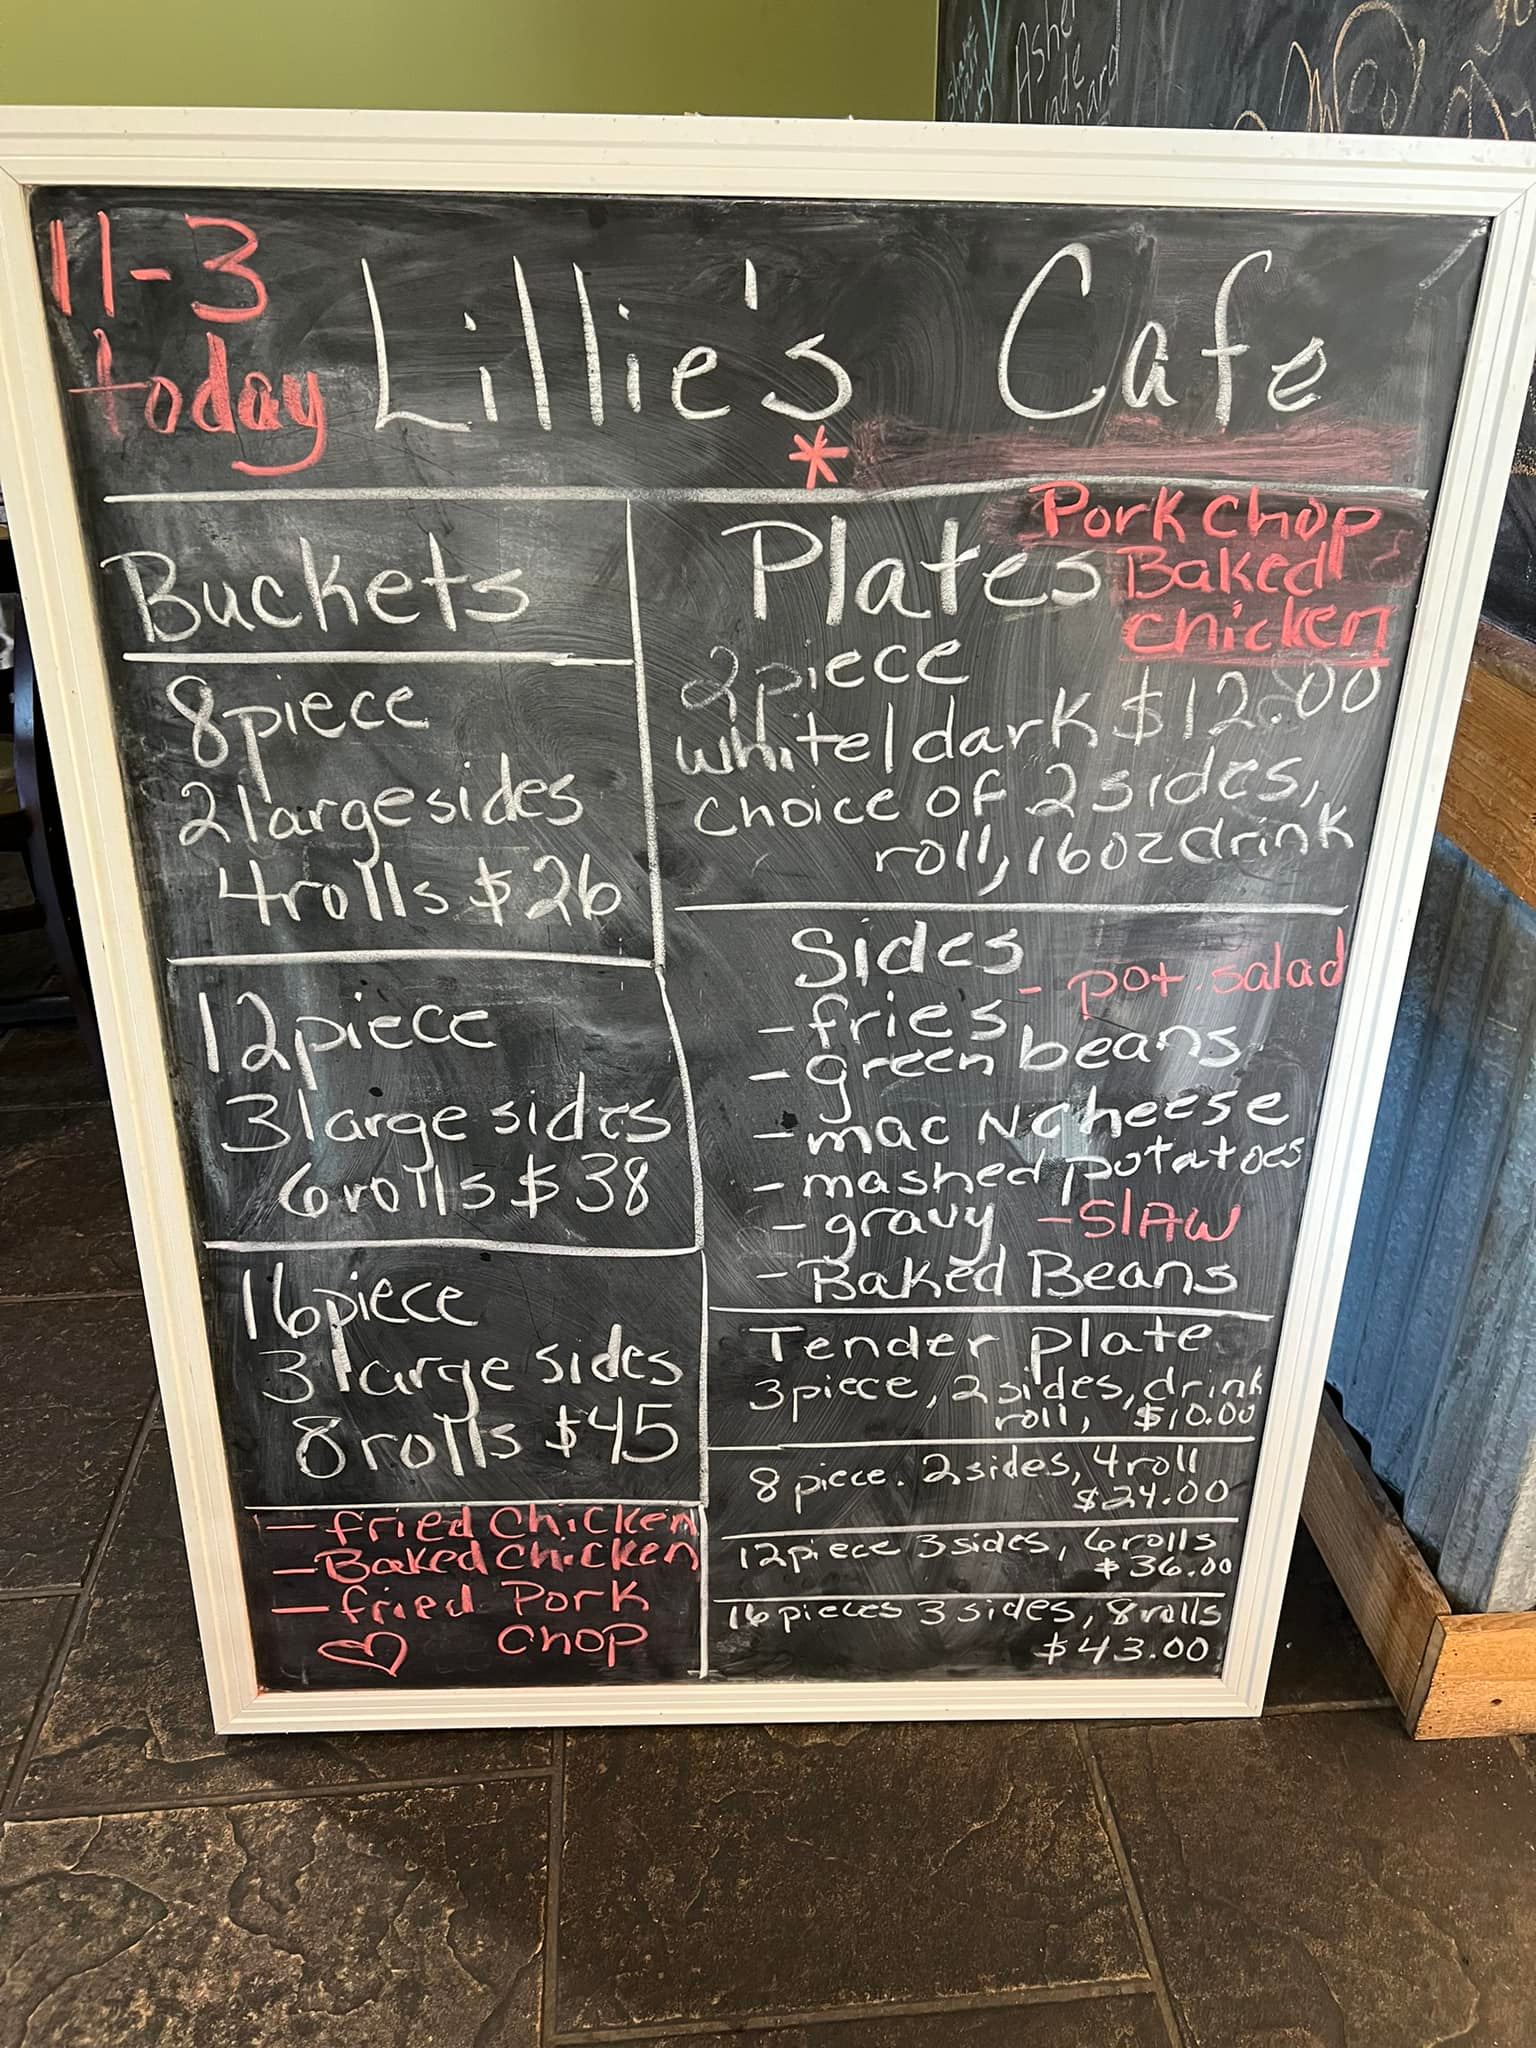 11-3
today
Lillie's Cafe
*
Buckets
8 piece
2 large sides
4 rolls $26
12 piece
3 large sides
6 rolls $38
16 piece
3 large sides
8 rolls $45
- fried Chicken
- Baked Chicken
- fried Pork
Chop
Plates
Pork Chop
Baked
chicken
2 piece
white/dark $12.00
choice of 2 sides,
roll, 16oz drink
Sides
- fries - pot. salad
- green beans
- mac N cheese
- mashed potatoes
- gravy - SlAW
- Baked Beans
Tender plate
3 piece, 2 sides, drink
roll, $10.00
8 piece. 2 sides, 4 roll
$24.00
12 piece 3 sides, 6 rolls
$36.00
16 pieces 3 sides, 8 rolls
$43.00